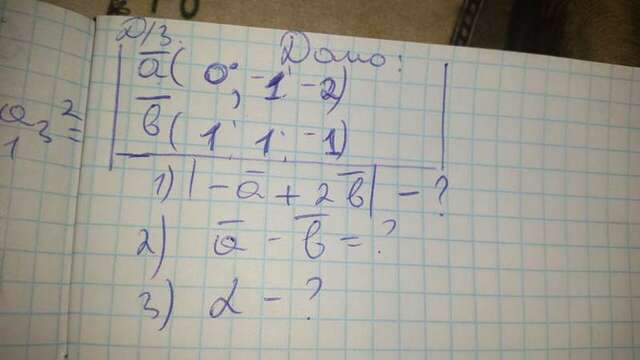 Д/З. Дано:
a̅ ( 0; -1; -2)
b̅ ( 1; 1; -1)
1) | -a̅ + 2b̅ | - ?
2) a̅ - b̅ = ?
3) α - ?